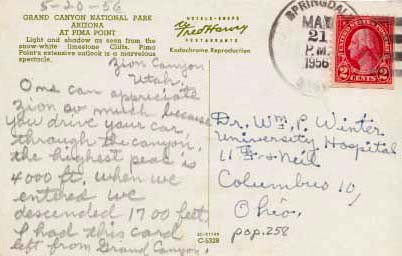 5-20-56
GRAND CANYON NATIONAL PARK
ARIZONA
AT PIMA POINT
Light and shadow as seen from the
snow-white limestone Cliffs. Pima
Point's extensive outlook is a marvelous
spectacle.
HOTELS-SHOPS
Fred Harvey
RESTAURANTS
Kodachrome Reproduction
SPRINGDALE
MAY
21
P.M.
1956
2 CENTS 2
Zion Canyon
Utah,
One can appreciate
Zion so much because
you drive your car
through the canyon,
the highest peak is
4000 ft, when we
entered we
descended 1700 feet,
I had this card
left from Grand Canyon.
C-5328
Dr. Wm. P. Winter
University Hospital
11th & Neil
Columbus 10,
Ohio.
pop. 258